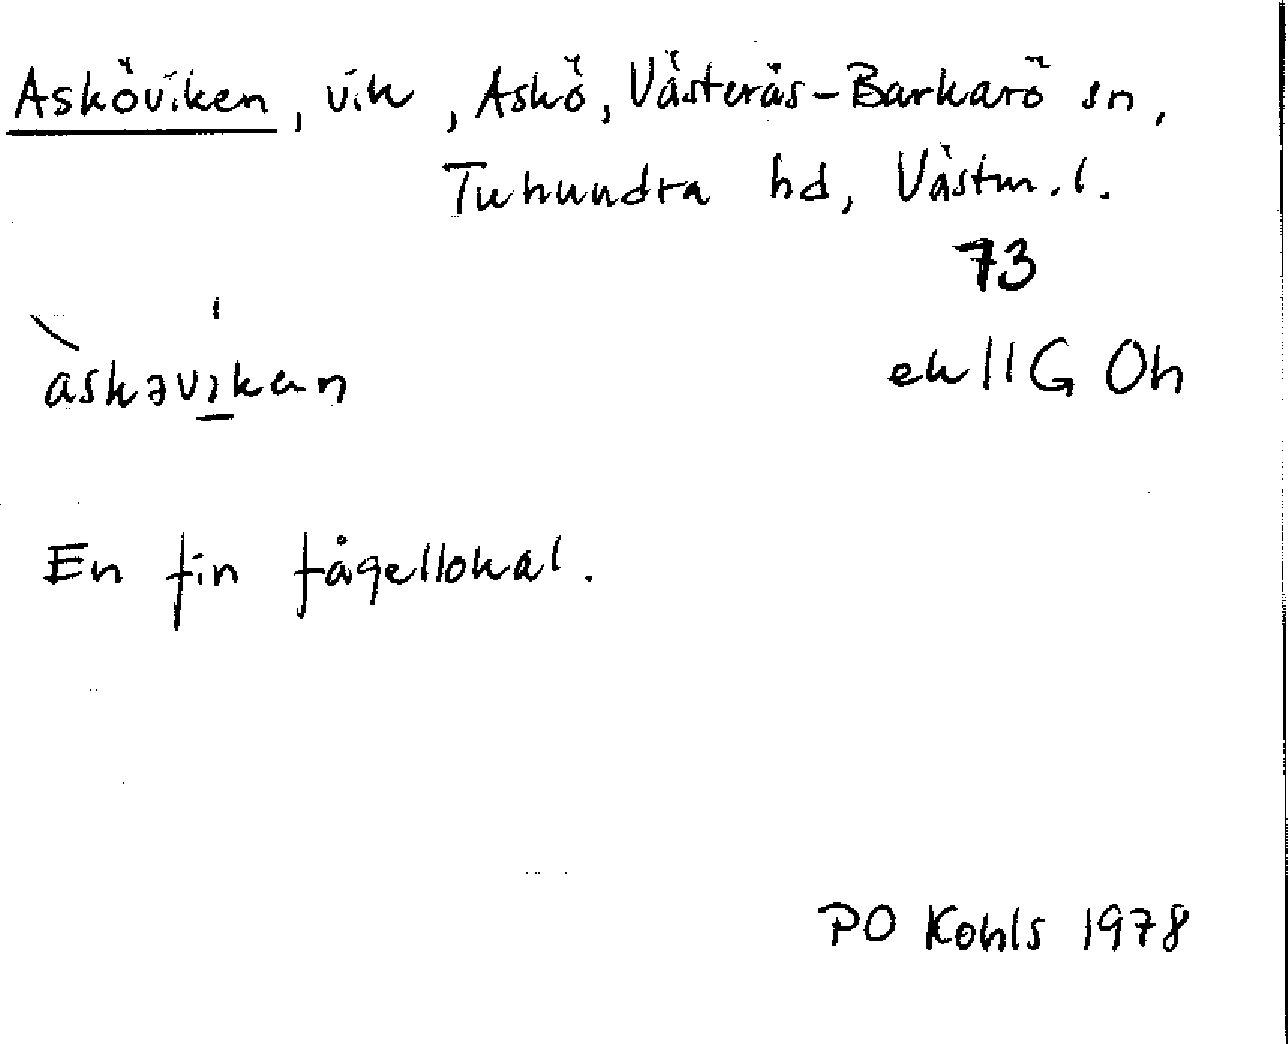 Asköviken, vik, Askö, Västerås-Barkarö sn,
Tuhundra hd, Västm. l.
73
àskəvìkən
ek 11G 0h
En fin fågellokal.
PO Kohls 1978